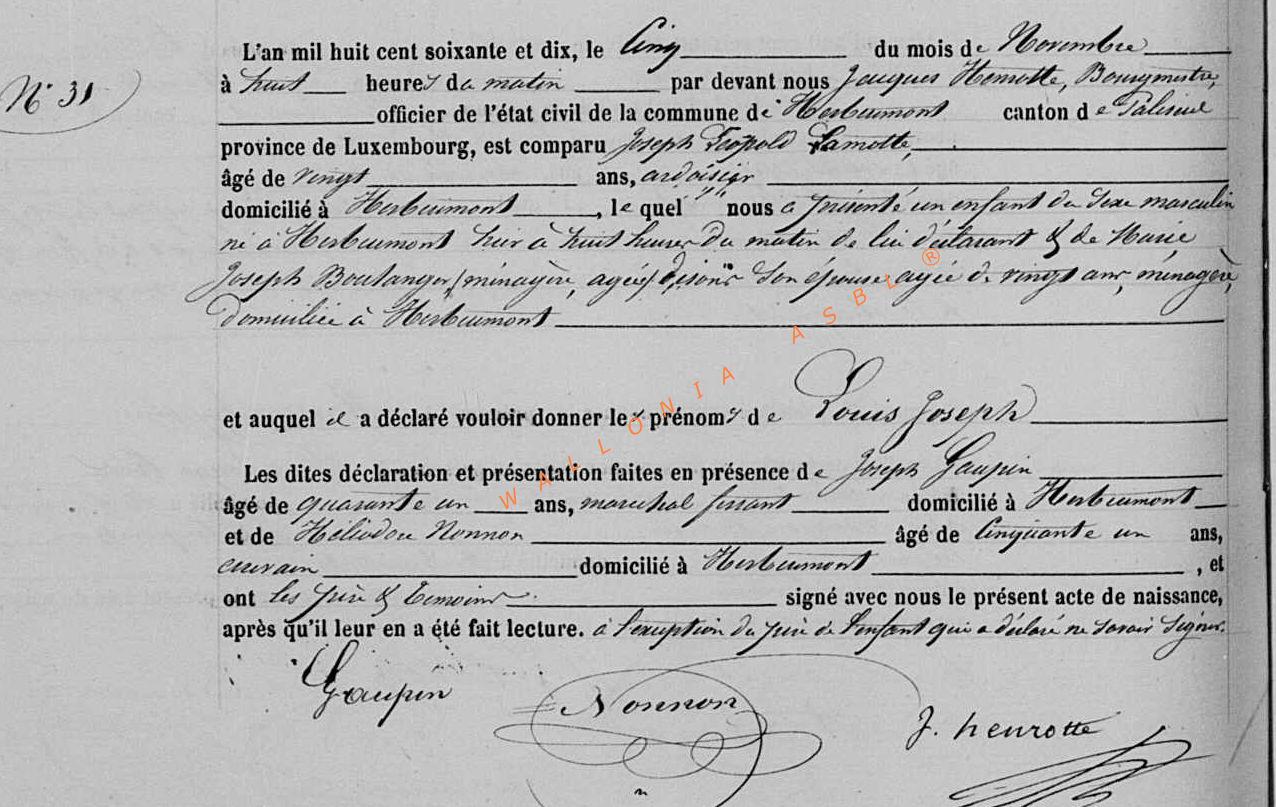 L'an mil huit cent soixante et dix, le Cinq du mois de Novembre
N° 31
à huit heures du matin par devant nous Jacques Henrotte, Bourgmestre,
officier de l'état civil de la commune de Herbeumont canton de Paliseul
province de Luxembourg, est comparu Joseph Léopold Lamotte,
âgé de vingt ans, ardoisier
domicilié à Herbeumont, le quel nous a présenté un enfant du sexe masculin
né à Herbeumont hier à huit heures du matin de lui déclarant & de Marie
Joseph Boulanger (ménagère, agée) disons son épouse agée de vingt ans, ménagère,
domiciliée à Herbeumont
et auquel il a déclaré vouloir donner les prénoms de Louis Joseph
Les dites déclaration et présentation faites en présence de Joseph Gaupin
âgé de quarante un ans, marechal ferrant domicilié à Herbeumont
et de Héliodore Nonnon âgé de cinquante un ans,
domicilié à Herbeumont, et
ont les père & temoins signé avec nous le présent acte de naissance,
après qu'il leur en a été fait lecture. à l'exception du père de l'enfant qui a déclaré ne savoir signer.
Gaupin Nonnon J. henrotte
WALLONIA ASBL ®